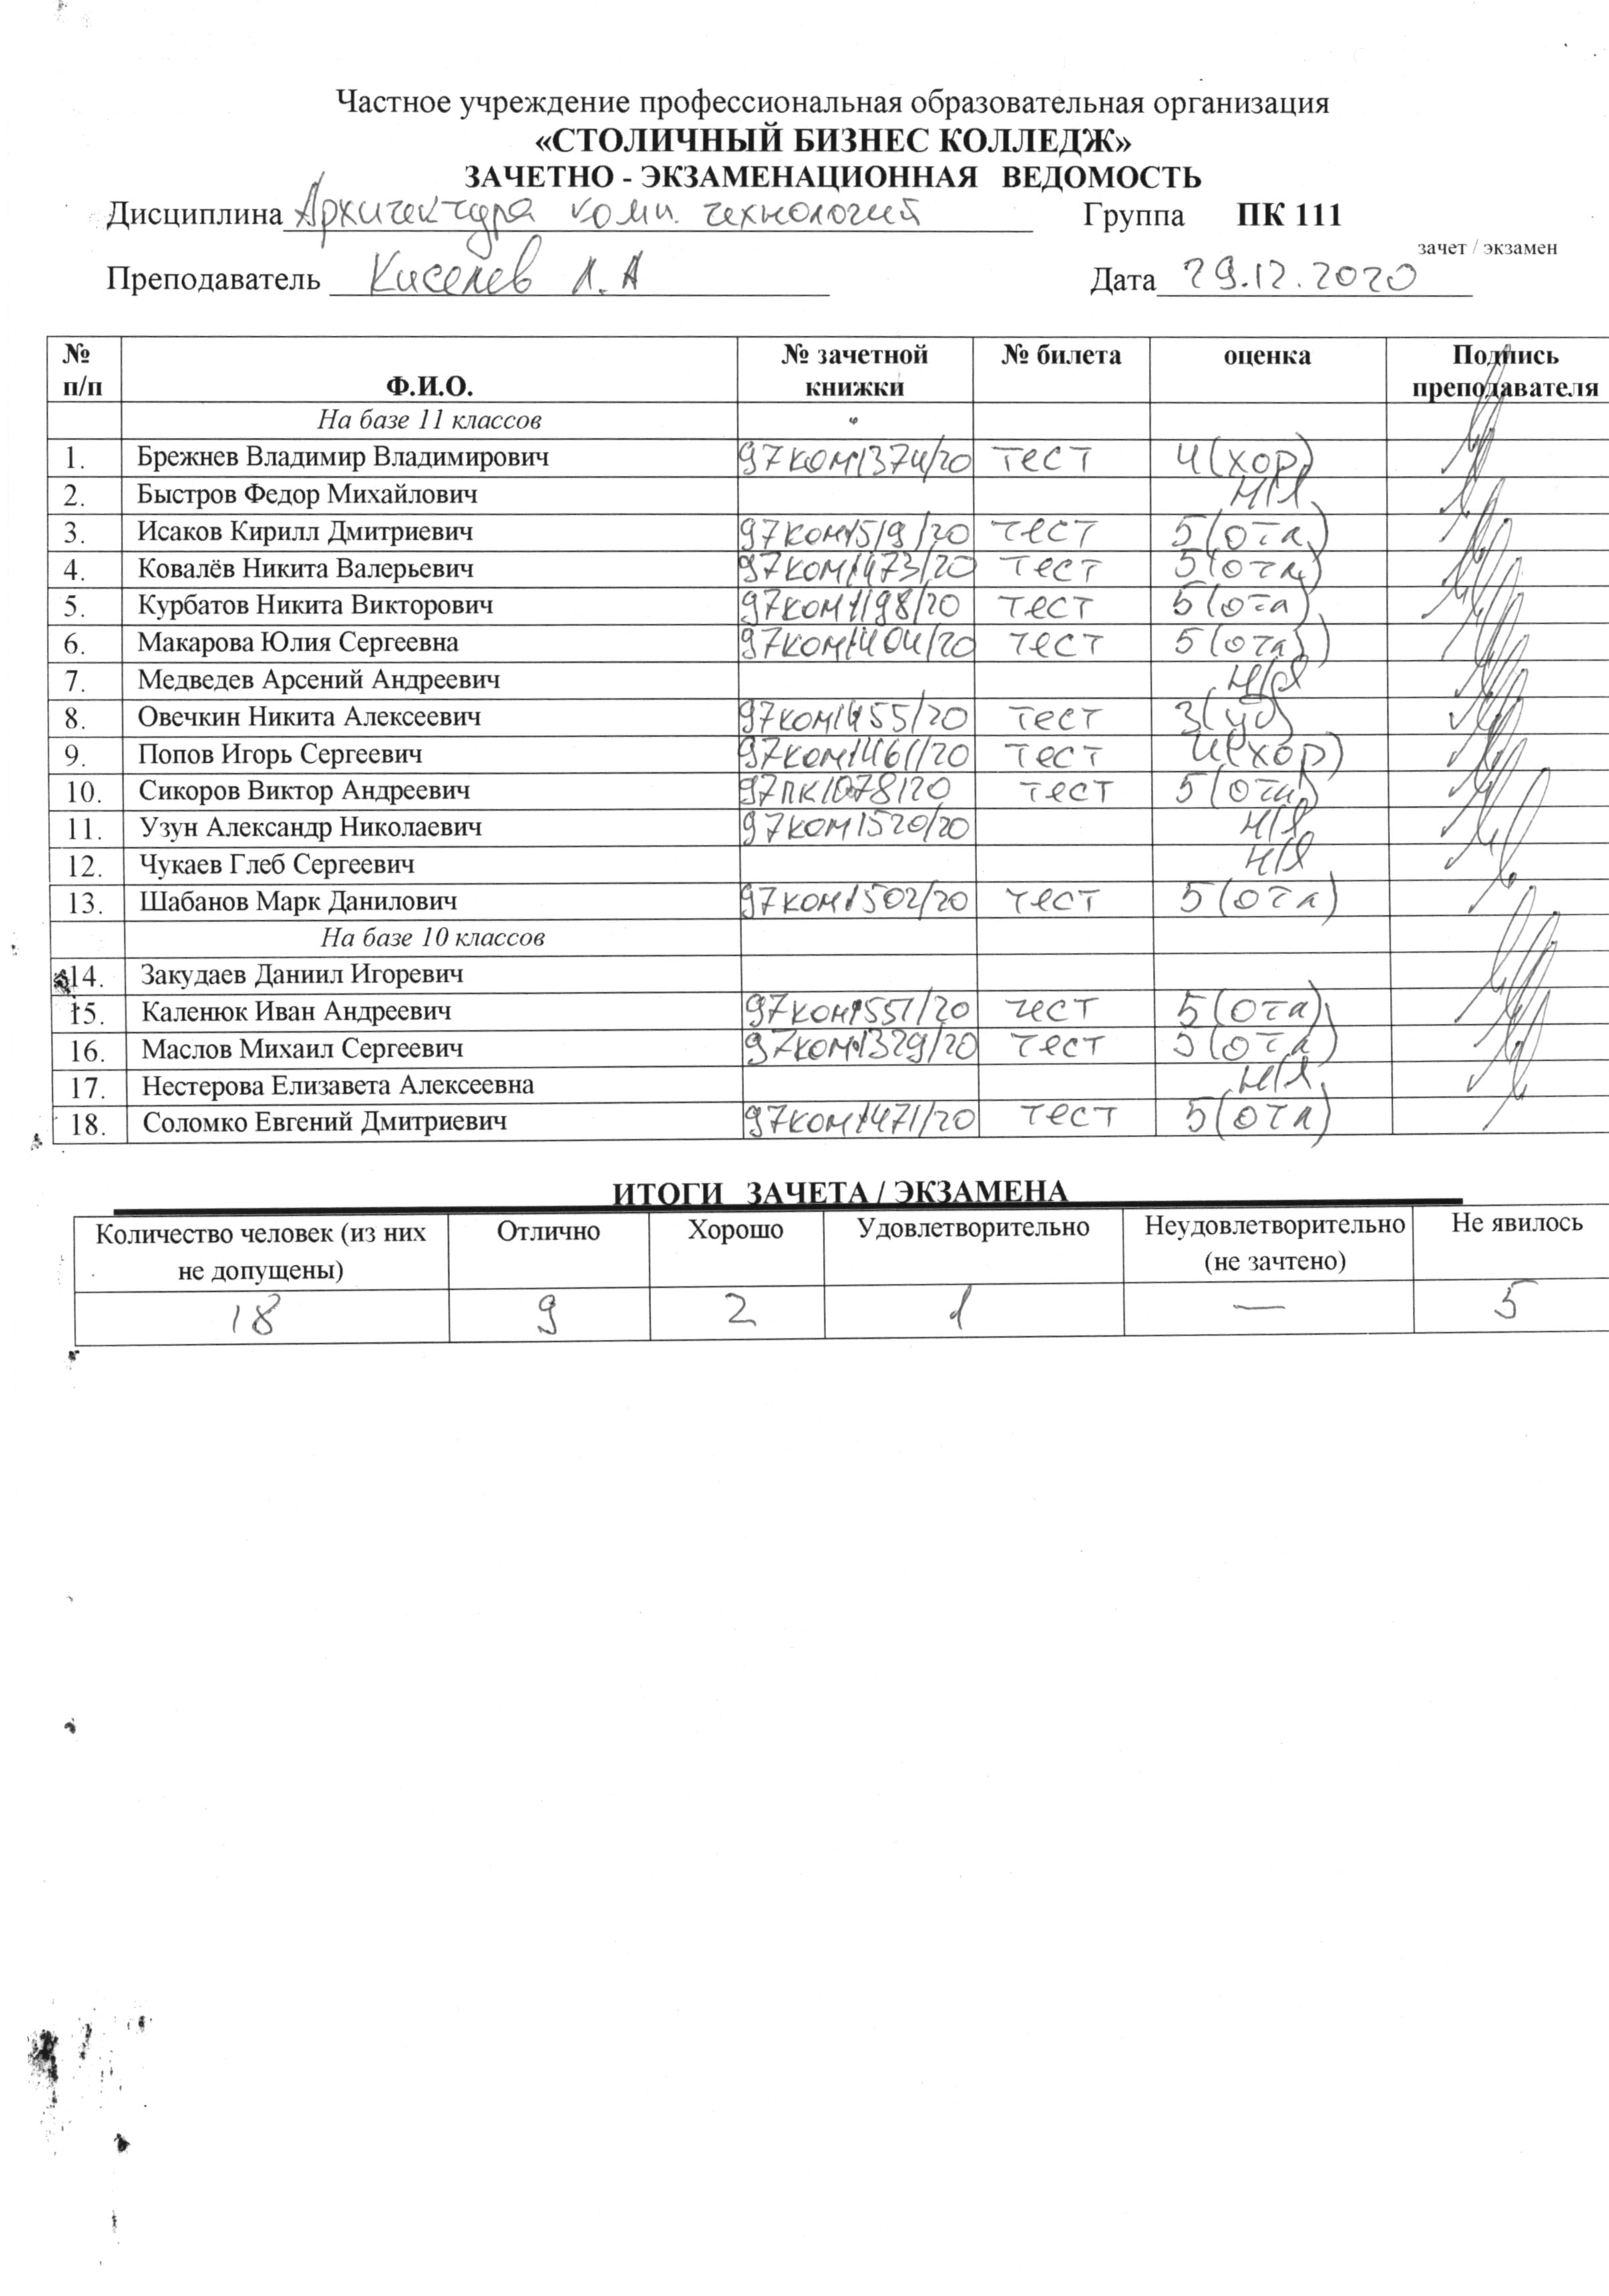 Частное учреждение профессиональная образовательная организация
«СТОЛИЧНЫЙ БИЗНЕС КОЛЛЕДЖ»
ЗАЧЕТНО - ЭКЗАМЕНАЦИОННАЯ ВЕДОМОСТЬ
Дисциплина Архитектура комп. технологий Группа ПК 111
зачет / экзамен
Преподаватель Киселев Л.А Дата 29.12.2020
№ п/п Ф.И.О. № зачетной книжки № билета оценка Подпись преподавателя
На базе 11 классов
1. Брежнев Владимир Владимирович 97КОМ1374/20 тест 4(хор)
2. Быстров Федор Михайлович н/я
3. Исаков Кирилл Дмитриевич 97КОМ1519/20 тест 5(отл)
4. Ковалёв Никита Валерьевич 97КОМ1473/20 тест 5(отл)
5. Курбатов Никита Викторович 97КОМ1198/20 тест 5(отл)
6. Макарова Юлия Сергеевна 97КОМ1404/20 тест 5(отл)
7. Медведев Арсений Андреевич н/я
8. Овечкин Никита Алексеевич 97КОМ1455/20 тест 3(уд)
9. Попов Игорь Сергеевич 97КОМ1461/20 тест 4(хор)
10. Сикоров Виктор Андреевич 97ПК1078/20 тест 5(отл)
11. Узун Александр Николаевич 97КОМ1520/20 н/я
12. Чукаев Глеб Сергеевич н/я
13. Шабанов Марк Данилович 97КОМ1502/20 тест 5(отл)
На базе 10 классов
14. Закудаев Даниил Игоревич
15. Каленюк Иван Андреевич 97КОМ1551/20 тест 5(отл)
16. Маслов Михаил Сергеевич 97КОМ1329/20 тест 5(отл)
17. Нестерова Елизавета Алексеевна н/я
18. Соломко Евгений Дмитриевич 97КОМ1471/20 тест 5(отл)
ИТОГИ ЗАЧЕТА / ЭКЗАМЕНА
Количество человек (из них не допущены) Отлично Хорошо Удовлетворительно Неудовлетворительно (не зачтено) Не явилось
18 9 2 1 — 5